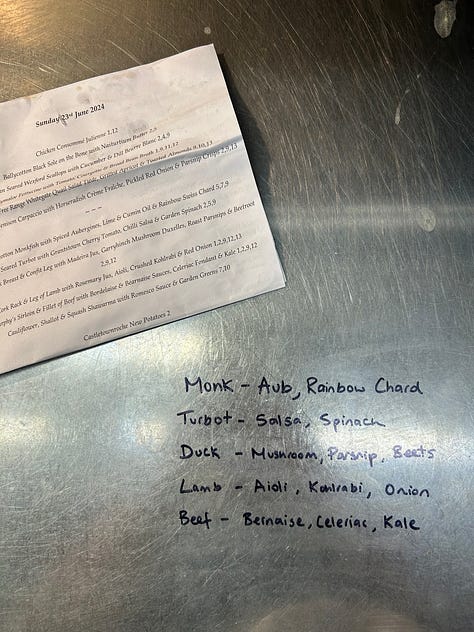 Sunday 23rd June 2024
Chicken Consommé Julienne 1,12
Ballycotton Black Sole on the Bone with Nasturtium Butter 2,5
Seared Wexford Scallops with Cucumber & Dill Beurre Blanc 2,4,9
with Tomato, Courgette & Broad Bean Broth 1,9,11,12
Free Range Whitegate Quail Salad, Apricot & Toasted Almonds 8,10,13
Venison Carpaccio with Horseradish Crème Fraîche, Pickled Red Onion & Parsnip Crisps 2,9,13
Monkfish with Spiced Aubergines, Lime & Cumin Oil & Rainbow Swiss Chard 5,7,9
Seared Turbot with Grantstown Cherry Tomato, Chilli Salsa & Garden Spinach 2,5,9
Breast & Confit Leg with Madeira Jus, Garryhinch Mushroom Duxelles, Roast Parsnips & Beetroot
2,9,12
Rack & Leg of Lamb with Rosemary Jus, Aioli, Crushed Kohlrabi & Red Onion 1,2,9,12,13
Sirloin & Fillet of Beef with Bordelaise & Bearnaise Sauces, Celeriac Fondant & Kale 1,2,9,12
Cauliflower, Shallot & Squash Shawarma with Romesco Sauce & Garden Greens 7,10
Castletownroche New Potatoes 2
Monk - Aub, Rainbow Chard
Turbot - Salsa, Spinach
Duck - Mushroom, Parsnip, Beets
Lamb - Aioli, Kohlrabi, Onion
Beef - Bernaise, Celeriac, Kale